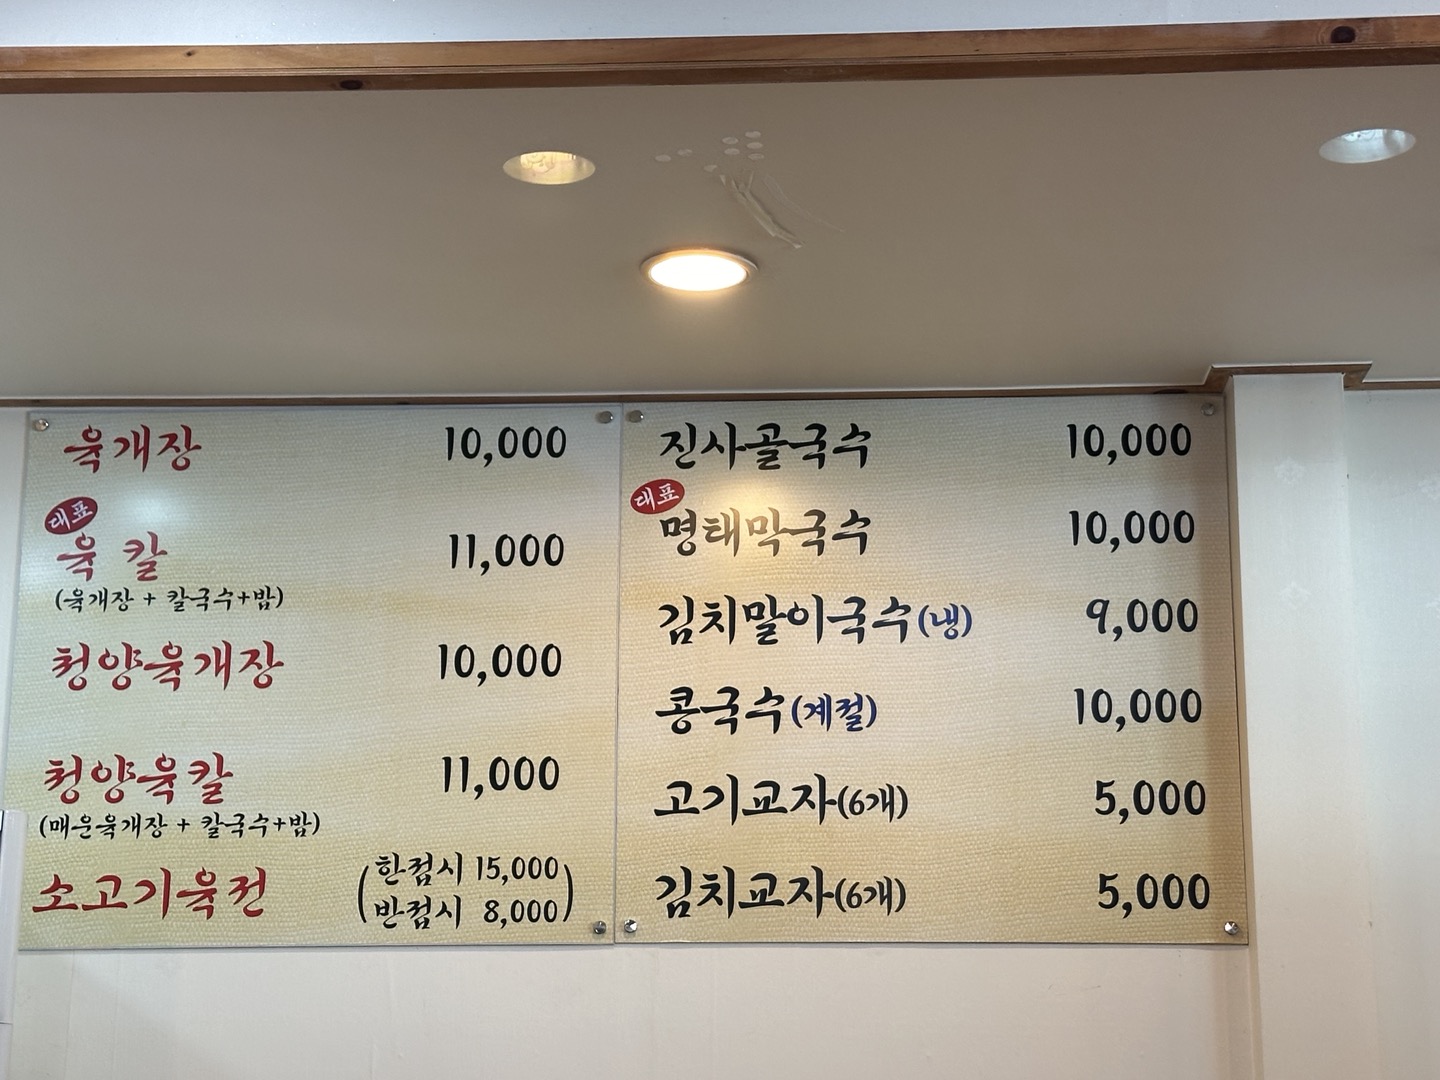 육개장 10,000
대표
육 칼 11,000
(육개장 + 칼국수+밥)
청양육개장 10,000
청양육칼 11,000
(매운육개장 + 칼국수+밥)
소고기육전 (한접시 15,000
반접시 8,000)
진사골국수 10,000
대표
명태막국수 10,000
김치말이국수(냉) 9,000
콩국수(계절) 10,000
고기교자(6개) 5,000
김치교자(6개) 5,000